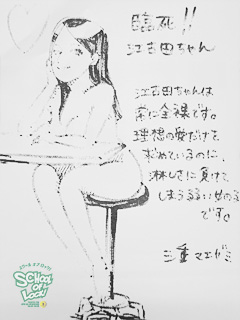 臨死!!
江古田ちゃん
江古田ちゃんは
常に全裸です。
理想の愛だけを
求めているのに、
淋しさに負けて
しまうるるい女の子
です。
三重マエガミ
SCHOOL
OF
LOCK!